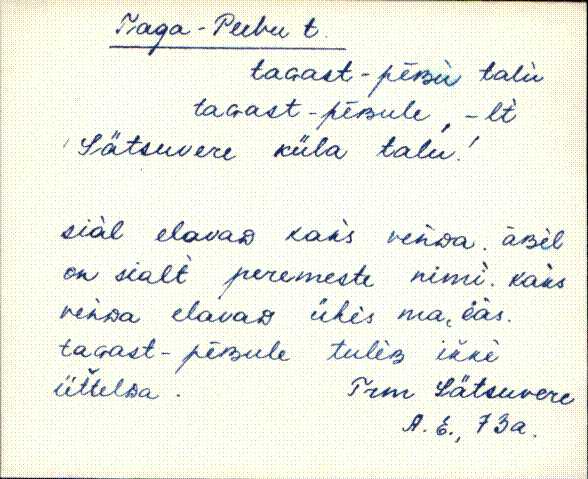 Taga-Peebu t.
tagast-pēʙù talù
tagast-pēʙule, -lt
'Sätsuvere küla talu!'
siàl elavaᴅ kaks venᴅa. äʙèl
on sialt peremeste nimì. kaks
venᴅa elavaᴅ ühes ma,èäs.
tagast-pēʙule tulèʙ ikkè
üttelᴅa.
Trm Sätsuvere
A. E., 73a.